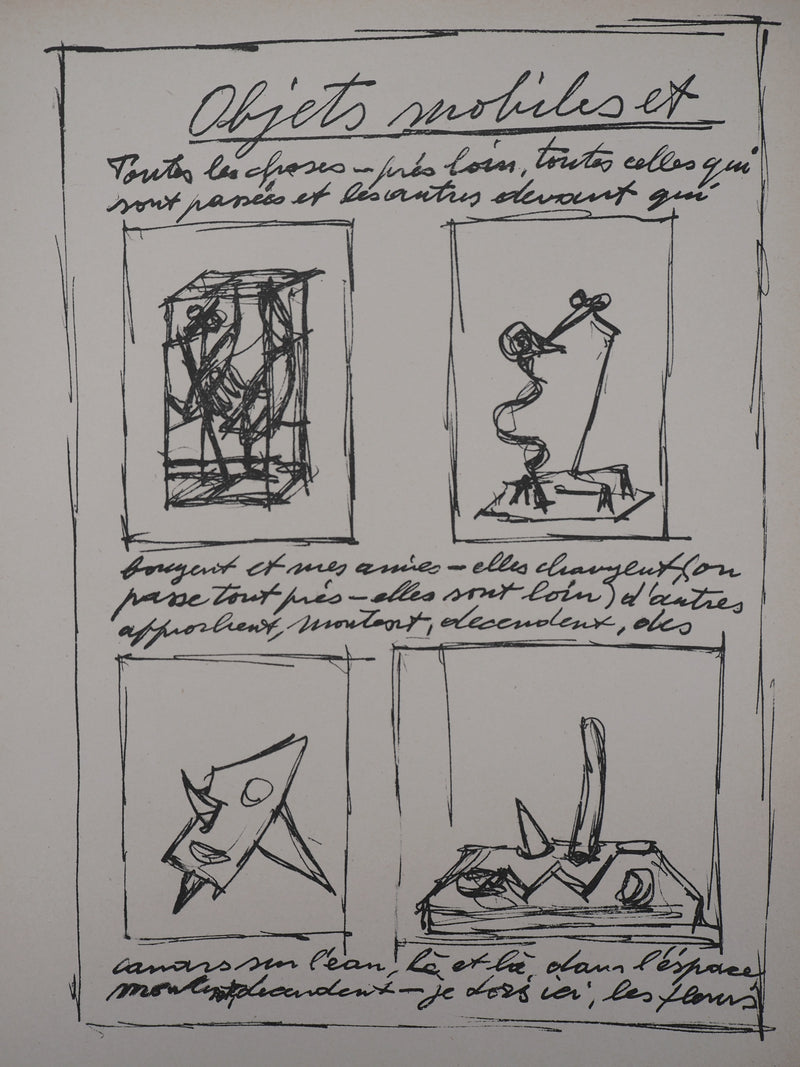 Objets mobiles et
Toutes les choses – près loin, toutes celles qui
sont passées et les autres devant qui
bougent et mes amies – elles changent (on
passe tout près – elles sont loin) d'autres
approchent, montent, decendent, des
canars sur l'eau, là et là, dans l'éspace
montent, decendent – je dors ici, les fleurs